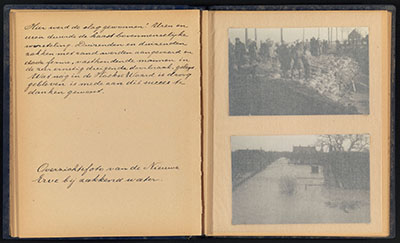 Hier werd de slag gewonnen! Uren en
uren duurde de haast bovenmenselijke
worsteling. Duizenden en duizenden
zakken met zand werden aangevoerd en
door ferme, vasthoudende mannen in
de zeer ernstig dreigende doorbraak gelegd
Wat nog in de Hoekse Waard is droog
gebleven is mede aan dit succes te
danken geweest.
Overzichtsfoto van de Nieuwe
Erve bij zakkend water.